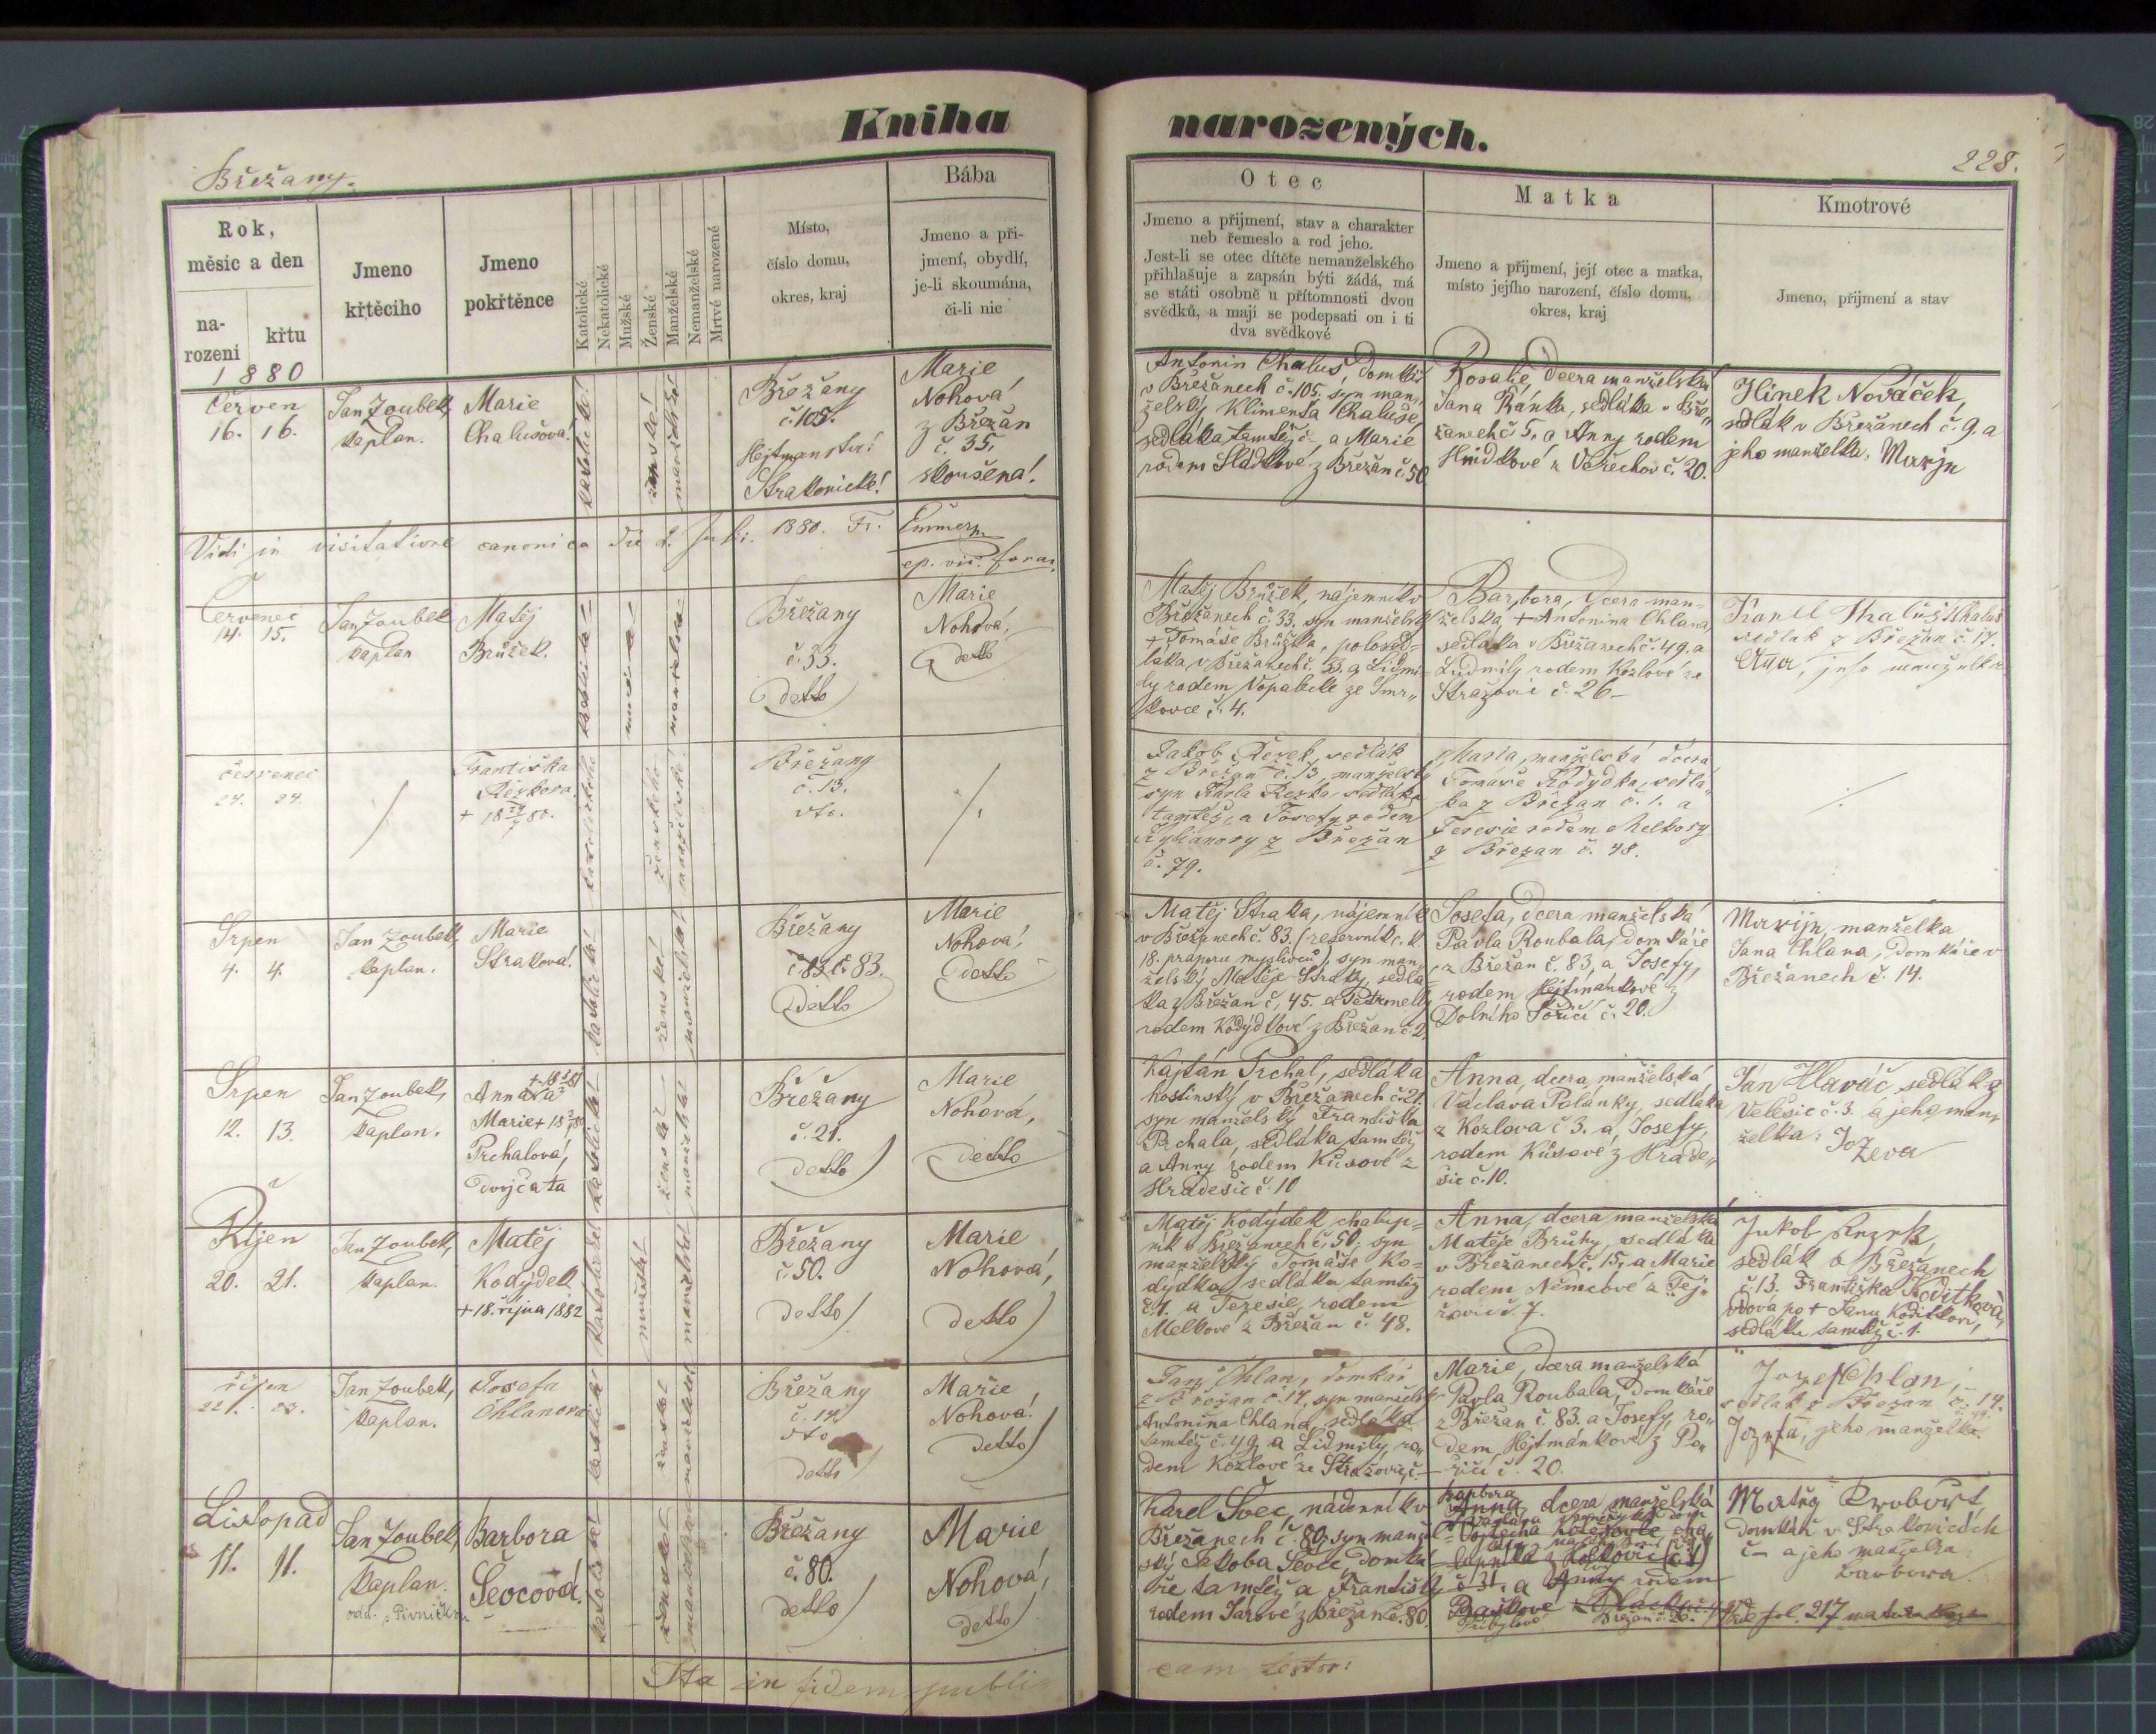 Kniha narozených.
Břežany.
228.
Rok,
měsic a den
na-
rozeni
křtu
1880
Jmeno
křtěciho
Jmeno
pokřtěnce
Katolické
Nekatolické
Mužské
Ženské
Manželské
Nemanželské
Mrtvé narozené
Místo,
číslo domu,
okres, kraj
Bába
Jmeno a při-
jmení, obydlí,
je-li skoumána,
či-li nic
Otec
Jmeno a přijmení, stav a charakter
neb řemeslo a rod jeho.
Jest-li se otec dítěte nemanželského
přihlašuje a zapsán býti žádá, má
se státi osobně u přítomnosti dvou
svědků, a mají se podepsati on i ti
dva svědkové
Matka
Jmeno a přijmení, její otec a matka,
místo jejího narození, číslo domu,
okres, kraj
Kmotrové
Jmeno, přijmení a stav
červen
16. 16.
Jan Zoubek,
kaplan.
Marie
Chalušová
katolické
ženské
manželské
Břežany
č. 105.
Hejtmanství
Strakonické
Marie
Nohová
z Břežan
č. 35,
skoušená
Antonin Chaluš, domkář
v Břežanech č. 105. syn man-
želský Klimenta Chaluše,
sedláka tamtéž a Marie
rodem Sládkové z Břežan č. 50
Rosalie, dcera manželská
Jana Ránka, sedláka v Bře-
žanech č 5, a Anny rodem
č. 20.
Hinek Nováček,
sedlák v Břežanech č. 9. a
jeho manželka, Marije
Vidi in visitatione canonica die 2. Juli. 1880. Fr.
ep. vic. foran.
Červenec
14. 15.
Jan Zoubek
kaplan
Matěj
Brůžek.
Břežany
č. 33.
detto
Marie
Nohová,
detto
Matěj Brůžek, nájemník v
Břežanech č. 33. syn manželský
+ Tomáše Brůžka, polosed-
láka v Břežanech č. 33. a Lidmi-
ly rodem ze Smr-
kovce č. 4.
Barbora, dcera man-
želská + Antonina Chlana,
sedláka v Břežanech č. 49. a
Ludmily rodem Kozlové ze
Stražovic č. 26
sedlak z Břežan č. 17.
jeho manželka
červenec
24. 24.
Františka
Řezkova.
+ 18 24/7 80.
Břežany
č. 13.
dto.
Jakob Řezek, sedlák
z Břežan č. 13, manželský
syn Karla Řezka, sedláka
tamtéž, a Josefy rodem
z Břežan
č. 79.
Maria, manželská dcera
Tomaše Kodydka, sedlá-
ka z Břežan č. 1. a
Teresie rodem Melkovy
z Břežan č. 48.
Srpen
4. 4.
Jan Zoubek,
kaplan.
Marie
Straková
Břežany
č. 83.
detto
Marie
Nohová,
detto
Matěj Straka, nájemník
v Břežanech č. 83. (reservník c. k.
18. praporu myslivců), syn man-
želský Matěje Straky, sedlá-
ka z Břežan č. 45. a Petronelly
rodem Kodydkové z Břežan č. 2.
Josefa, dcera manželská
Pavla Roubala, domkáře
z Břežan č. 83, a Josefy,
rodem Hejtmánkové z
Dolního Poříčí č. 20.
Marije, manželka
Jana Chlana, domkáře v
Břežanech č. 14.
Srpen
12. 13.
Jan Zoubek,
kaplan.
Anna a
Marie
Prchalová,
dvojčata
Břežany
č. 21.
detto
Marie
Nohová,
detto
Kajtán Prchal, sedlák a
hostinský v Břežanech č. 21.
syn manželský Františka
Prchala, sedláka tamtéž
a Anny rodem Kůsové z
Hradešic č. 10
Anna, dcera manželská
Václava Polánky, sedláka
z Kozlova č 3. a Josefy,
rodem Kůsové z Hrade-
šic č. 10.
Ján Hlaváč sedlák z
Velešic č. 3. a jeho man-
želka: Jozeva
Říjen
20. 21.
Jan Zoubek,
kaplan.
Matěj
Kodydek
+ 18. října 1882
Břežany
č. 50.
detto
Marie
Nohová,
detto
Matěj Kodýdek chalup-
ník v Břežanech č. 50. syn
manželský Tomáše Ko-
dýdka, sedláka tamtéž
č. 1. a Terezie rodem
Melkové z Břežan č. 48.
Anna, dcera manželská
Matěje Bruhy, sedláka
v Břežanech č. 15, a Marie
rodem Němcové z Tej-
řovic č. 7.
Jakob Řezek,
sedlák v Břežanech
č. 13. Františka Koditková,
vdova po + Janu Koditkovi,
sedláku tamtéž č. 1.
říjen
22. 23.
Jan Zoubek,
kaplan.
Josefa
Chlanova
Břežany
č. 14
dto
detto
Marie
Nohová.
detto
Jan Chlan, domkář
z Břežan č. 14, syn manželský
Antonina Chlana, sedláka
tamtéž č. 49 a Lidmily ro-
dem Kozlové ze Stražovic č.
Marie, dcera manželská
Pavla Roubala, domkáře
z Břežan č. 83. a Josefy, ro-
dem Hejtmánkové z Po-
říčí č. 20.
Jozef Chlan,
sedlák z Břežan č. 19.
Jozefa, jeho manželka.
Listopad
11. 11.
Jan Zoubek,
kaplan.
Barbora
Ševcová.
Břežany
č. 80.
detto
Marie
Nohová,
detto
Karel Švec, nádenník v
Břežanech č. 80, syn manžel-
ský Jakoba Ševce domká-
ře tamtéž a Františky
rodem Járové z Břežan č. 80.
Barbora
Anna, dcera manželská
č 31. a Anny rodem
Břežan č. 20.
domkář v Strakonicích
č – a jeho manželka
Barbora
fol. 217
Ita in fidem publi-
cam testor: